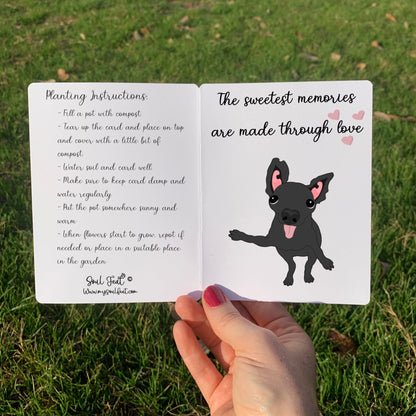 Planting Instructions:
- Fill a pot with compost.
- Tear up the card and place on top
and cover with a little bit of
compost.
- Water soil and card well
- Make sure to keep card damp and
water regularly
- Put the pot somewhere sunny and
warm
- When flowers start to grow repot if
needed or place in a suitable place
in the garden
Soul Feat ©
The sweetest memories
are made through love